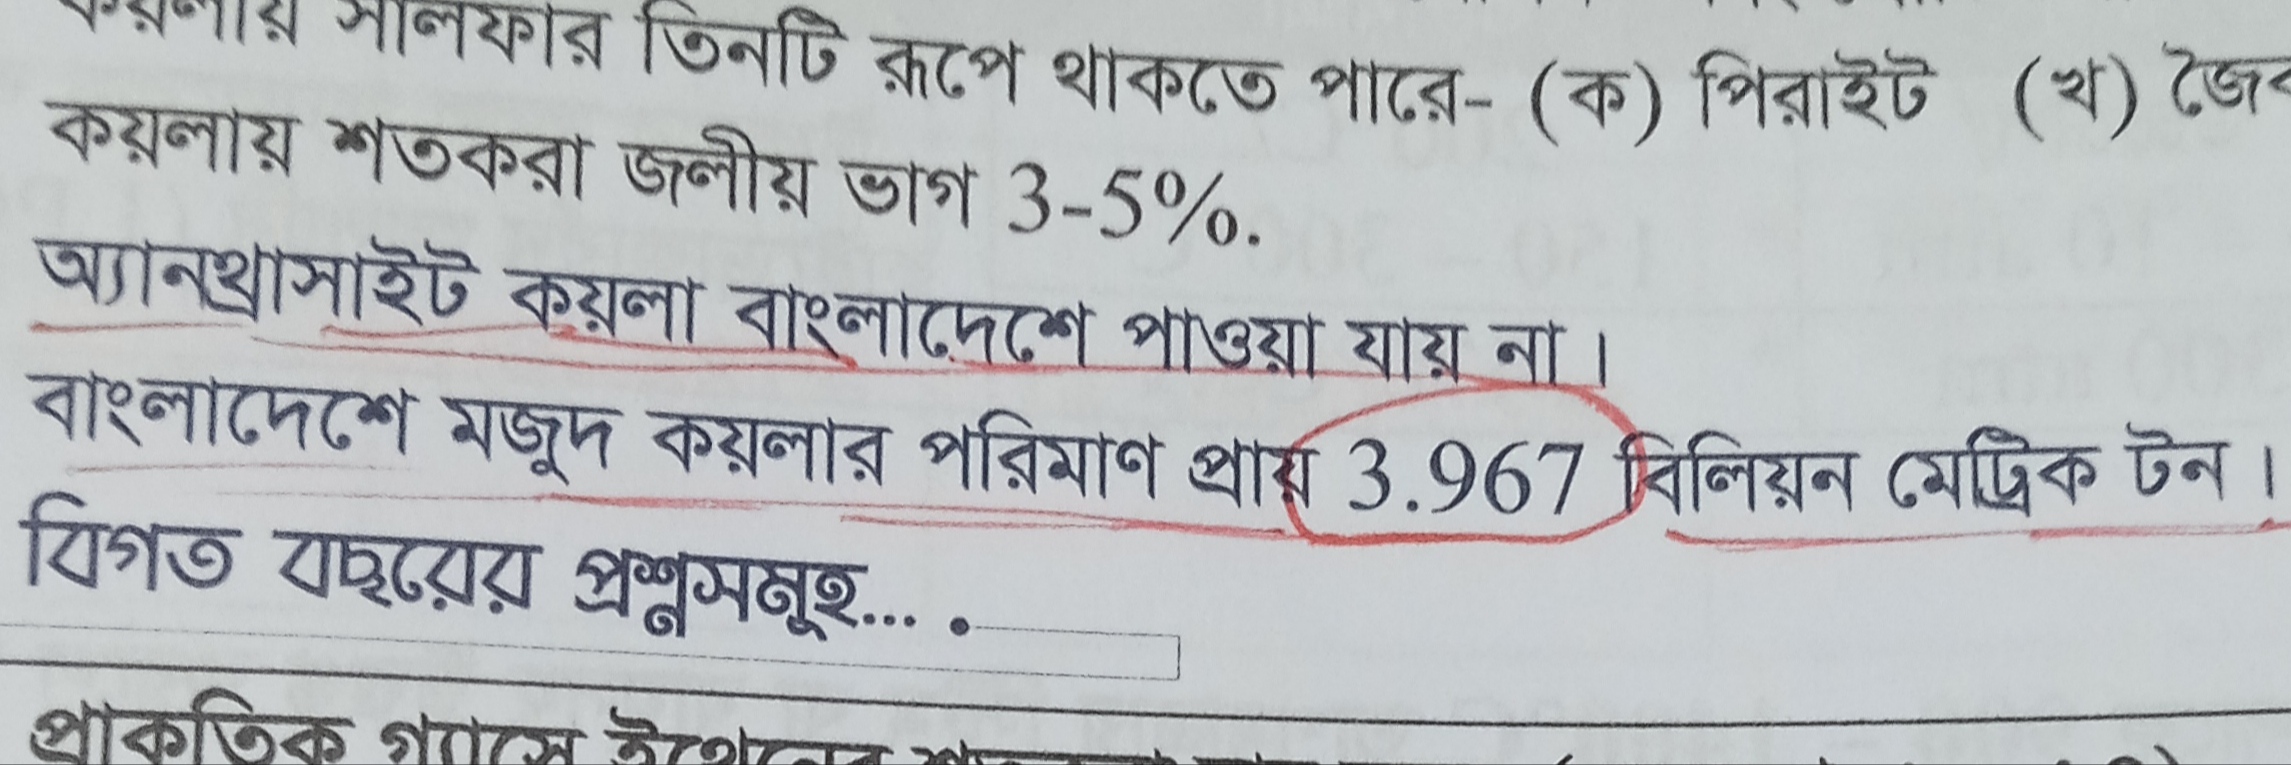 কয়লায় সালফার তিনটি রূপে থাকতে পারে- (ক) পিরাইট (খ) জৈব
কয়লায় শতকরা জলীয় ভাগ 3-5%.
অ্যানথ্রাসাইট কয়লা বাংলাদেশে পাওয়া যায় না।
বাংলাদেশে মজুদ কয়লার পরিমাণ প্রায় 3.967 বিলিয়ন মেট্রিক টন।
বিগত বছরের প্রশ্নসমূহ... .
প্রাকৃতিক গ্যাসে